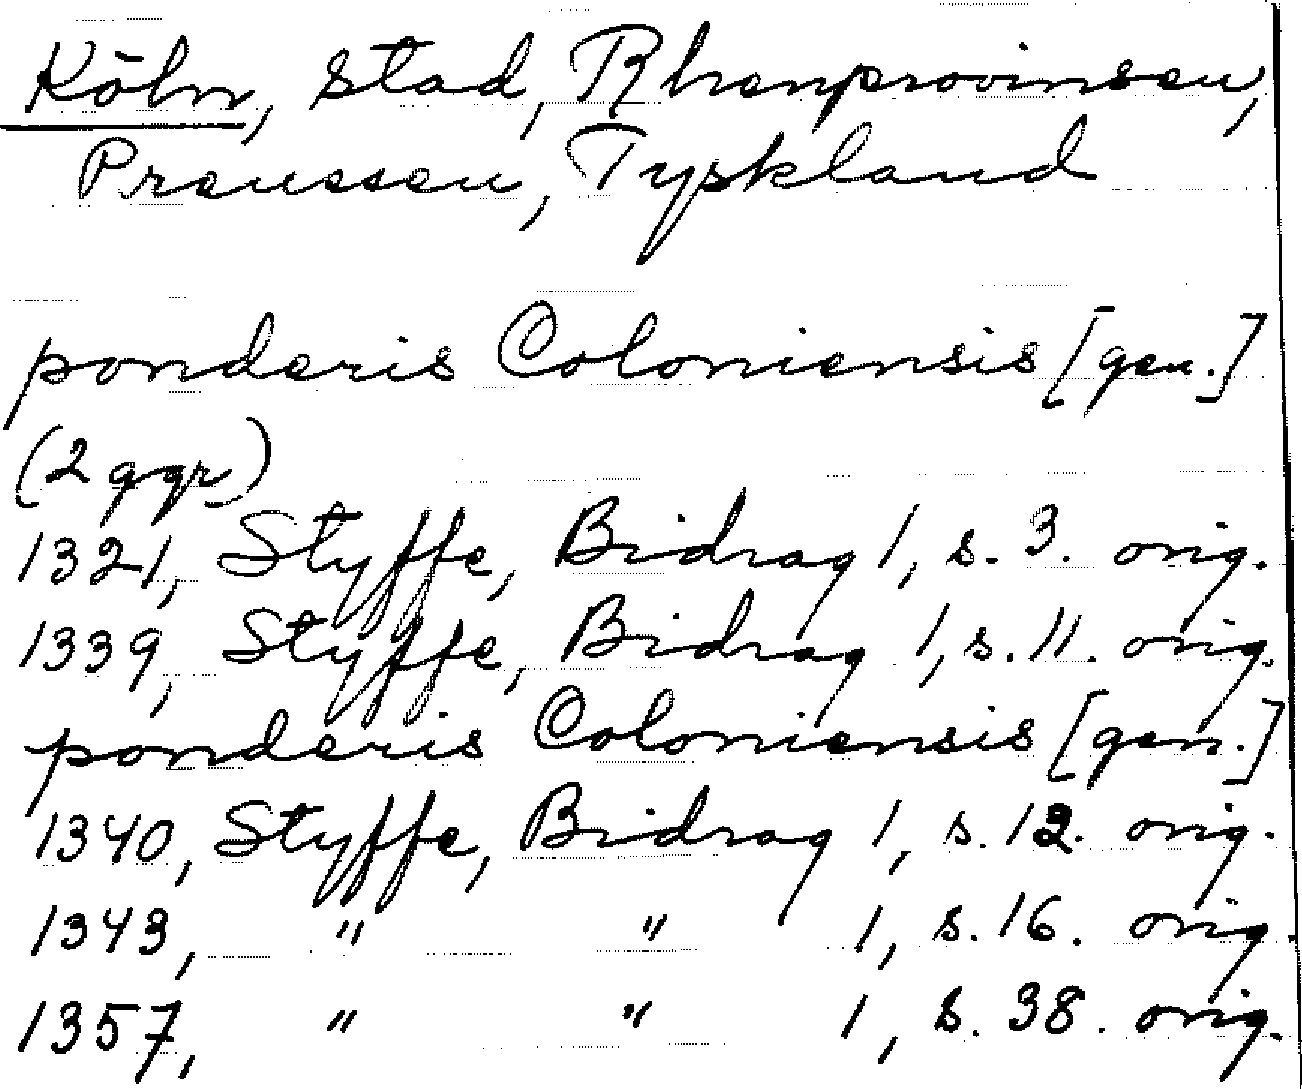 Köln, Stad, Rhenprovinsen,
Preussen, Tyskland
ponderis Coloniensis [gen.]
(2 ggr)
1321, Styffe, Bidrag 1, s. 3. orig.
1339, Styffe, Bidrag 1, s. 11. orig.
ponderis Coloniensis [gen.]
1340, Styffe, Bidrag 1, s. 12. orig.
1343, " " 1, s. 16. orig.
1357, " " 1, s. 38. orig.